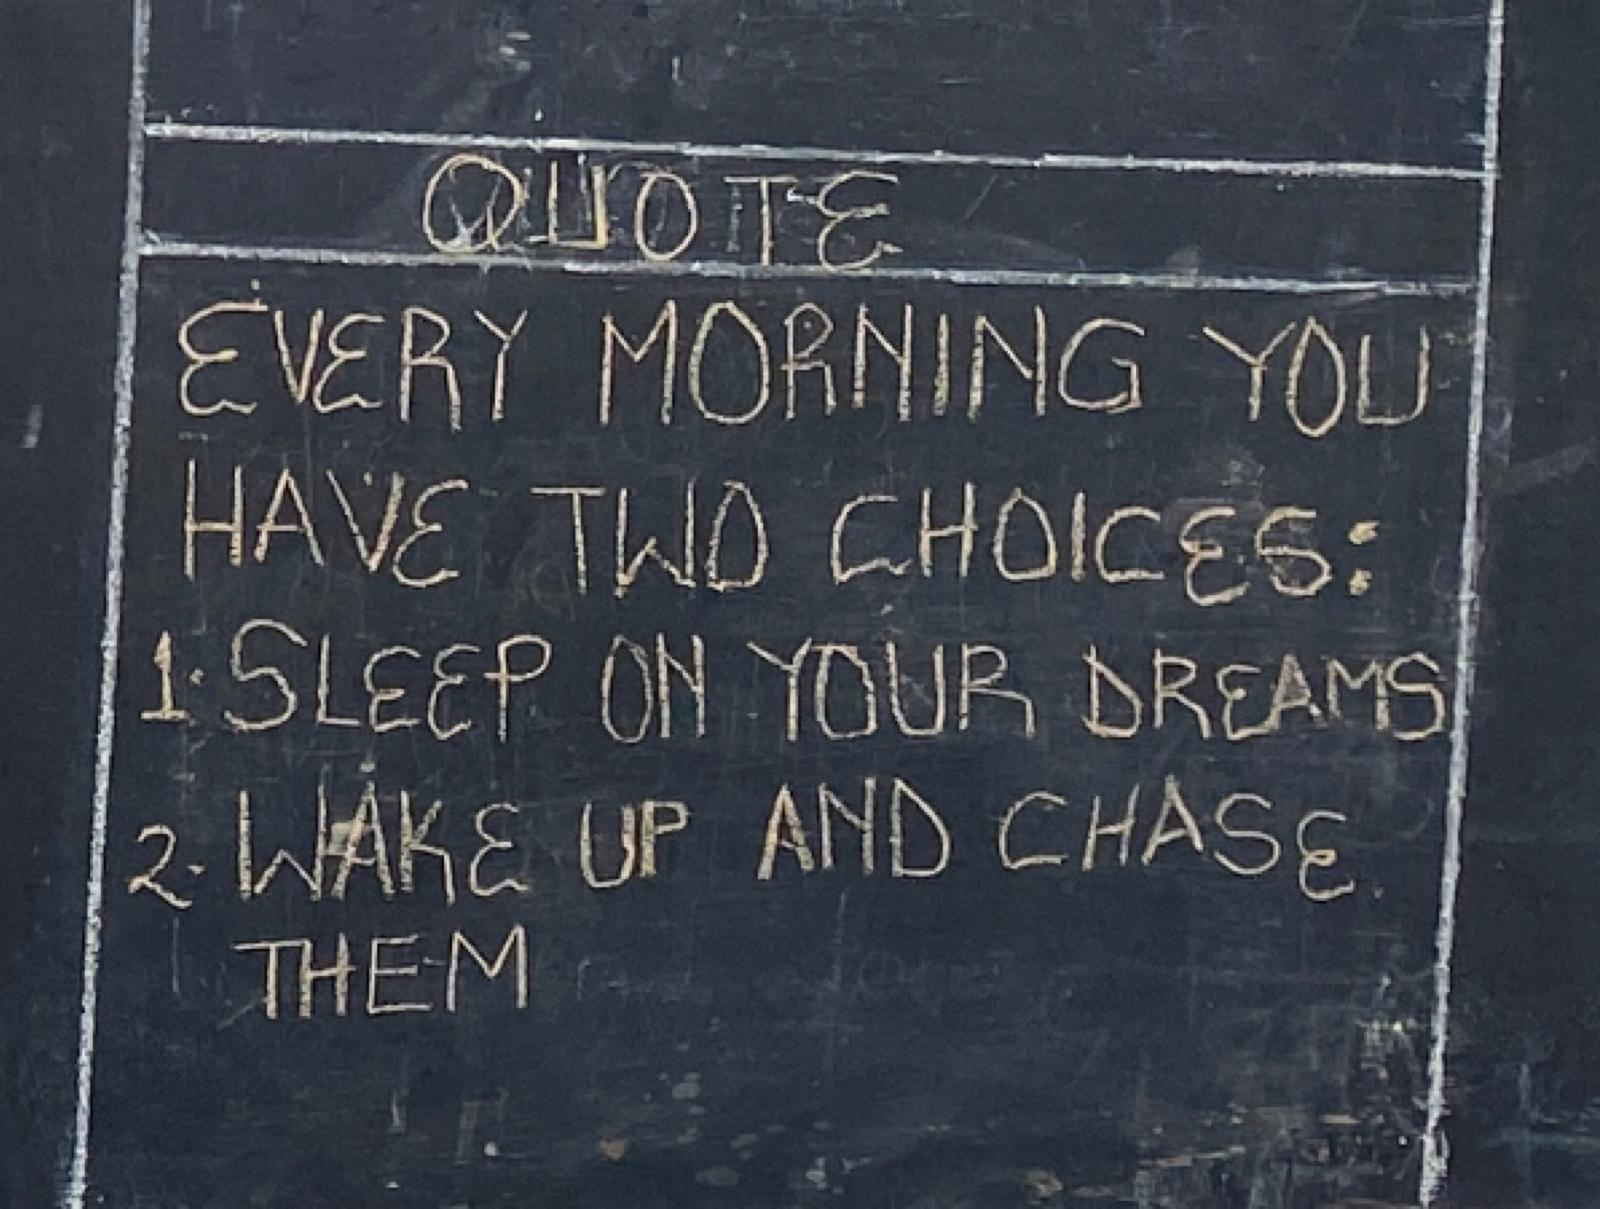 QUOTE
EVERY MORNING YOU
HAVE TWO CHOICES:
1. SLEEP ON YOUR DREAMS
2. WAKE UP AND CHASE
THEM